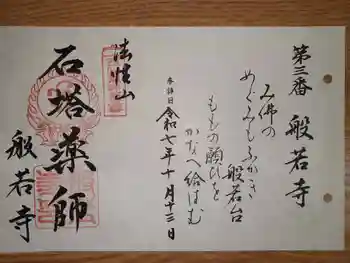 第三番 般若寺
み佛の
めぐみもふかき
般若台
ももの願ひを
かなへ給はむ
奉拝日 令和七年十月十三日
法性山
石塔薬師
般若寺